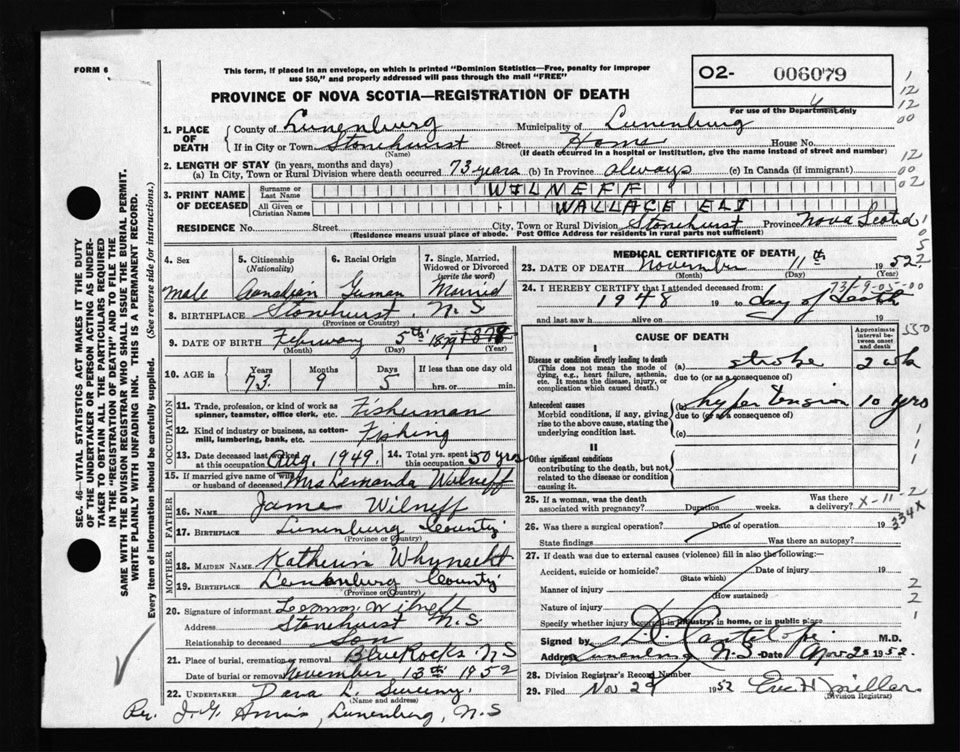 FORM 6
This form, if placed in an envelope, on which is printed "Dominion Statistics—Free, penalty for improper
use $50," and properly addressed will pass through the mail "FREE"
O2- 006079
For use of the Department only
PROVINCE OF NOVA SCOTIA—REGISTRATION OF DEATH
1. PLACE OF DEATH County of Lunenburg Municipality of Lunenburg
If in City or Town Stonehurst Street Home House No.
(Name) (If death occurred in a hospital or institution, give the name instead of street and number)
2. LENGTH OF STAY (in years, months and days)
(a) In City, Town or Rural Division where death occurred 73 years (b) In Province always (c) In Canada (if immigrant)
3. PRINT NAME OF DECEASED Surname or Last Name WILNEFF
All Given or Christian Names WALLACE ELI
RESIDENCE No. Street City, Town or Rural Division Stonehurst Province Nova Scotia
(Residence means usual place of abode. Post Office Address for residents in rural parts not sufficient)
4. Sex 5. Citizenship (Nationality) 6. Racial Origin 7. Single, Married, Widowed or Divorced (write the word)
male Canadian German Married
8. BIRTHPLACE Stonehurst N.S
(Province or Country)
9. DATE OF BIRTH February 5th 1879 1878
(Month) (Day) (Year)
10. AGE in Years Months Days If less than one day
73 9 5 hrs. or min.
OCCUPATION
11. Trade, profession, or kind of work as spinner, teamster, office clerk, etc. Fisherman
12. Kind of industry or business, as cotton-mill, lumbering, bank, etc. Fishing
13. Date deceased last worked at this occupation Aug. 1949. 14. Total yrs. spent in this occupation 50 yrs
15. If married give name of wife or husband of deceased Mrs Lemanda Wilneff
FATHER
16. Name James Wilneff
17. Birthplace Lunenburg County
(Province or Country)
MOTHER
18. MAIDEN NAME Katherin Whynacht
19. BIRTHPLACE Lunenburg County
(Province or Country)
20. Signature of informant Wilneff
Address Stonehurst N.S
Relationship to deceased Son
21. Place of burial, cremation or removal Blue Rocks NS
Date of burial or removal November 13th 1952
22. UNDERTAKER L.
(Name and address)
Lunenburg, N.S
MEDICAL CERTIFICATE OF DEATH
23. DATE OF DEATH November 11th 1952
(Month) (Day) (Year)
24. I HEREBY CERTIFY that I attended deceased from: 73/-9-05-00
1948 19 to day of Death
and last saw h alive on 19
CAUSE OF DEATH Approximate interval between onset and death
I
Disease or condition directly leading to death (a) stroke 2 wk
(This does not mean the mode of dying, e.g., heart failure, asthenia, etc. It means the disease, injury, or complication which caused death.)
due to (or as a consequence of)
Antecedent causes (b) hypertension 10 yrs
Morbid conditions, if any, giving rise to the above cause, stating the underlying condition last.
due to (or as a consequence of)
(c)
II
Other significant conditions
contributing to the death, but not related to the disease or condition causing it.
25. If a woman, was the death associated with pregnancy? Duration weeks. Was there a delivery?
X-11-2
26. Was there a surgical operation? Date of operation 19
334X
State findings Was there an autopsy?
27. If death was due to external causes (violence) fill in also the following:—
Accident, suicide or homicide? Date of injury 19
(State which)
Manner of injury
(How sustained)
Nature of injury
Specify whether injury occurred in industry, in home, or in public place
Signed by M.D.
Address Lunenburg N.S Date Nov 20 1952.
28. Division Registrar's Record Number
29. Filed Nov 29 1952 Eric H Miller
(Division Registrar)
SEC. 46—VITAL STATISTICS ACT MAKES IT THE DUTY
OF THE UNDERTAKER OR PERSON ACTING AS UNDER-
TAKER TO OBTAIN ALL THE PARTICULARS REQUIRED
IN THE "REGISTRATION OF DEATH" AND TO FILE THE
SAME WITH THE DIVISION REGISTRAR WHO SHALL ISSUE THE BURIAL PERMIT.
WRITE PLAINLY WITH UNFADING INK. THIS IS A PERMANENT RECORD.
Every item of information should be carefully supplied. (See reverse side for instructions.)